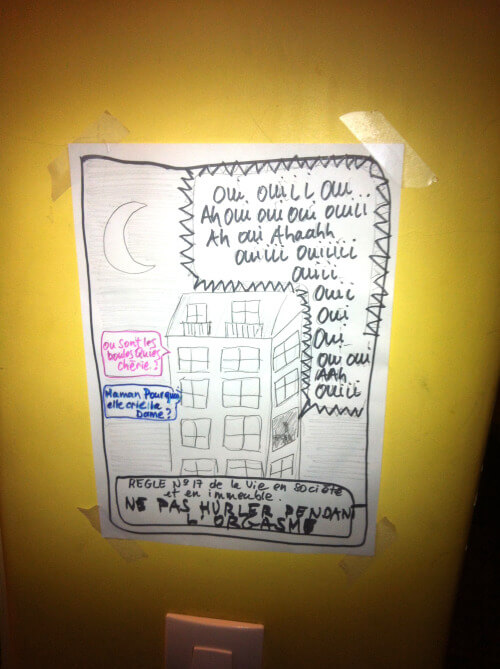 Oui.. ouiiii oui...
Ah oui oui oui ouiii
Ah oui Ahaahh...
ouiiii ouiiiiii
ouiii..
oui i
oui
oui
oui oui
AAh
ouiii
ou sont les
boules quies
chérie ?
Maman Pourquoi
elle crie la
Dame ?
REGLE N°17 de la vie en société
et en immeuble.
NE PAS HURLER PENDANT
L'ORGASME